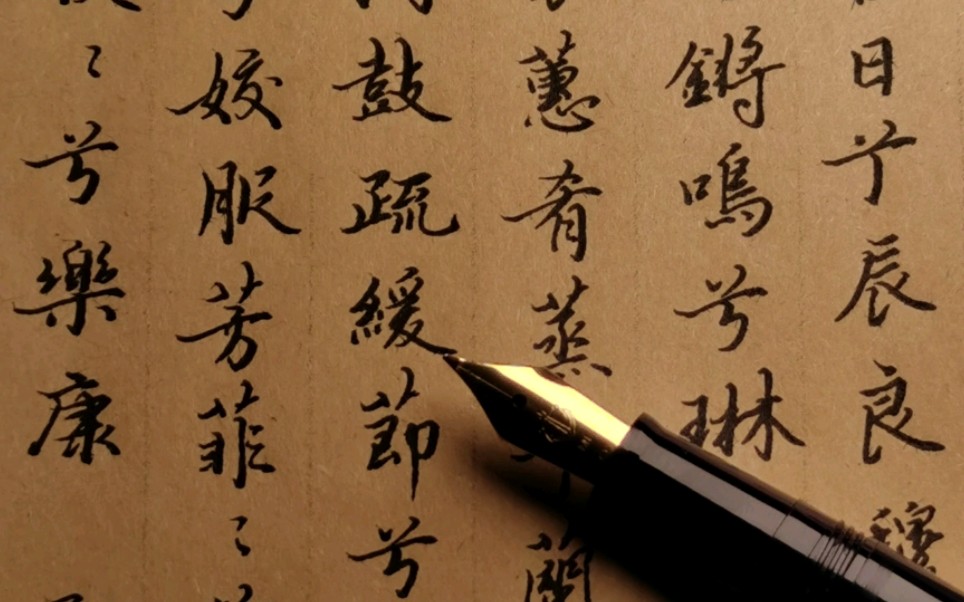 日兮辰良穆
鏘鳴兮琳
蕙肴蒸蘭
鼓疏緩節兮
姣服芳菲〻
〻兮樂康